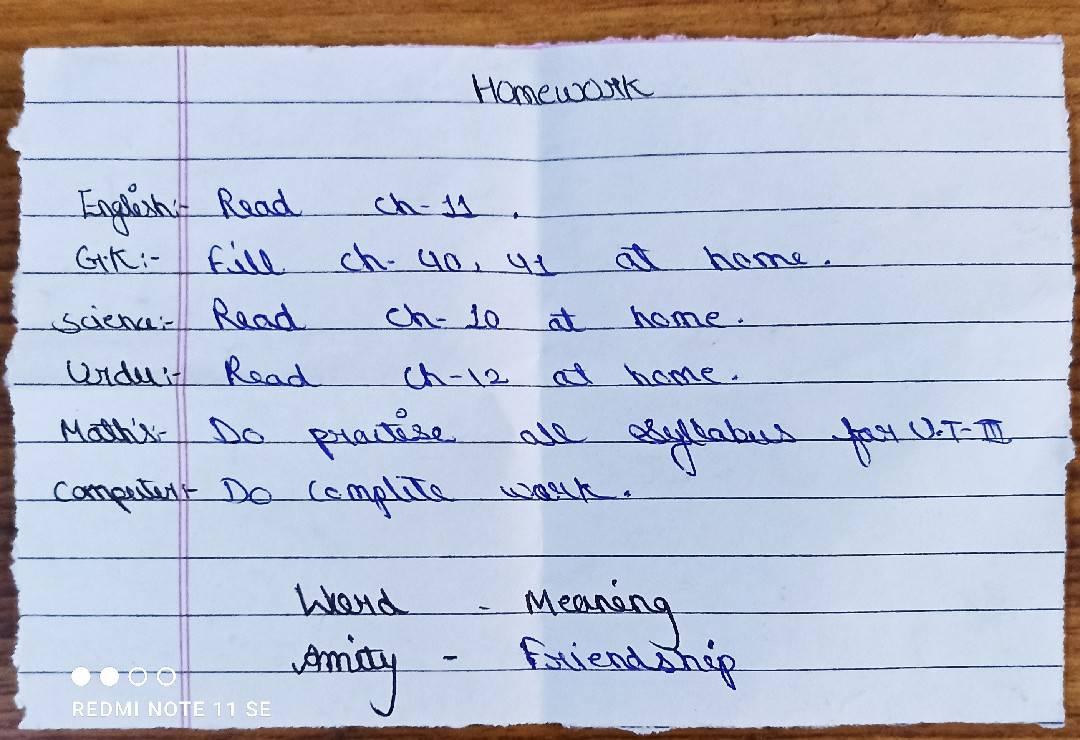 Homework
English:- Read ch-11.
G.K:- Fill ch- 40, 41 at home.
Science:- Read ch- 10 at home.
Urdu:- Read ch-12 at home.
Math's:- Do practise all syllabus for U.T-III
Computer:- Do Complite work.
Word - Meaning
Amity - Friendship
REDMI NOTE 11 SE